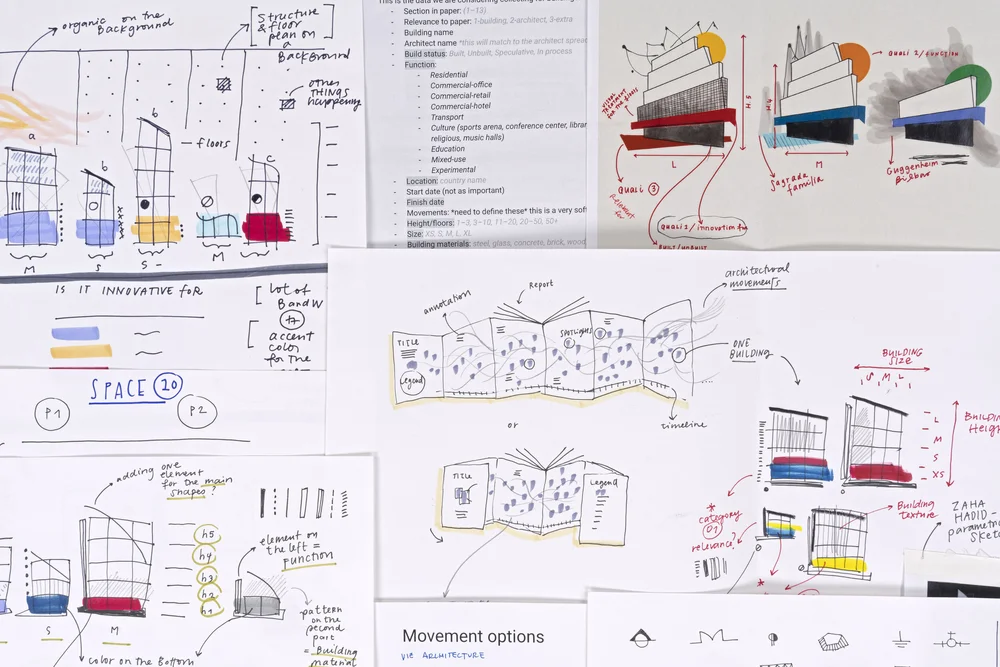 organic on the
Background
[Structure
& floor
plan on
a
Background]
other
THINGS
happening
a
b
b
c
floors
M
S
S
M
IS IT INNOVATIVE FOR
[ lot of
B and W
+
[ accent
color
for the
SPACE 20
P1
P2
This is the data we are considering collecting for
- Section in paper: (1–13)
- Relevance to paper: 1-building, 2-architect, 3-extra
- Building name
- Architect name *this will match to the architect
- Build status: Built, Unbuilt, Speculative, In process
- Function:
- Residential
- Commercial-office
- Commercial-retail
- Commercial-hotel
- Transport
- Culture (sports arena, conference center,
religious, music halls)
- Education
- Mixed-use
- Experimental
- Location: country name
- Start date (not as important)
- Finish date
- Movements: *need to define these* this is a very
- Height/floors: 1–3, 3–10, 11–20, 20–50, 50+
- Size: XS, S, M, L, XL
- Building materials: steel, glass, concrete, brick, wood
for the floors
H5
L
QUALI 3
Relevant
for
QUALI 1/innovation
BUILT/UNBUILT
H4
M
Sagrada
familia
QUALI 2/FUNCTION
Guggenheim
Bilbao
annotation
Report
architectural
movements
TITLE
Legend
SPOTLIGHTS
ONE
BUILDING
timeline
or
TITLE
Legend
BUILDING
SIZE
S M L
L
M
S
XS
Building
*
category
01
relevance?
Building
texture
*
ZAHA
HADID –
adding one
element
for the main
shapes?
h5
h4
h3
h2
h1
S
M
color on the Bottom
element on
the left =
function
pattern
on the
second
part
= Building
material
Movement options
VIE ARCHITECTURE